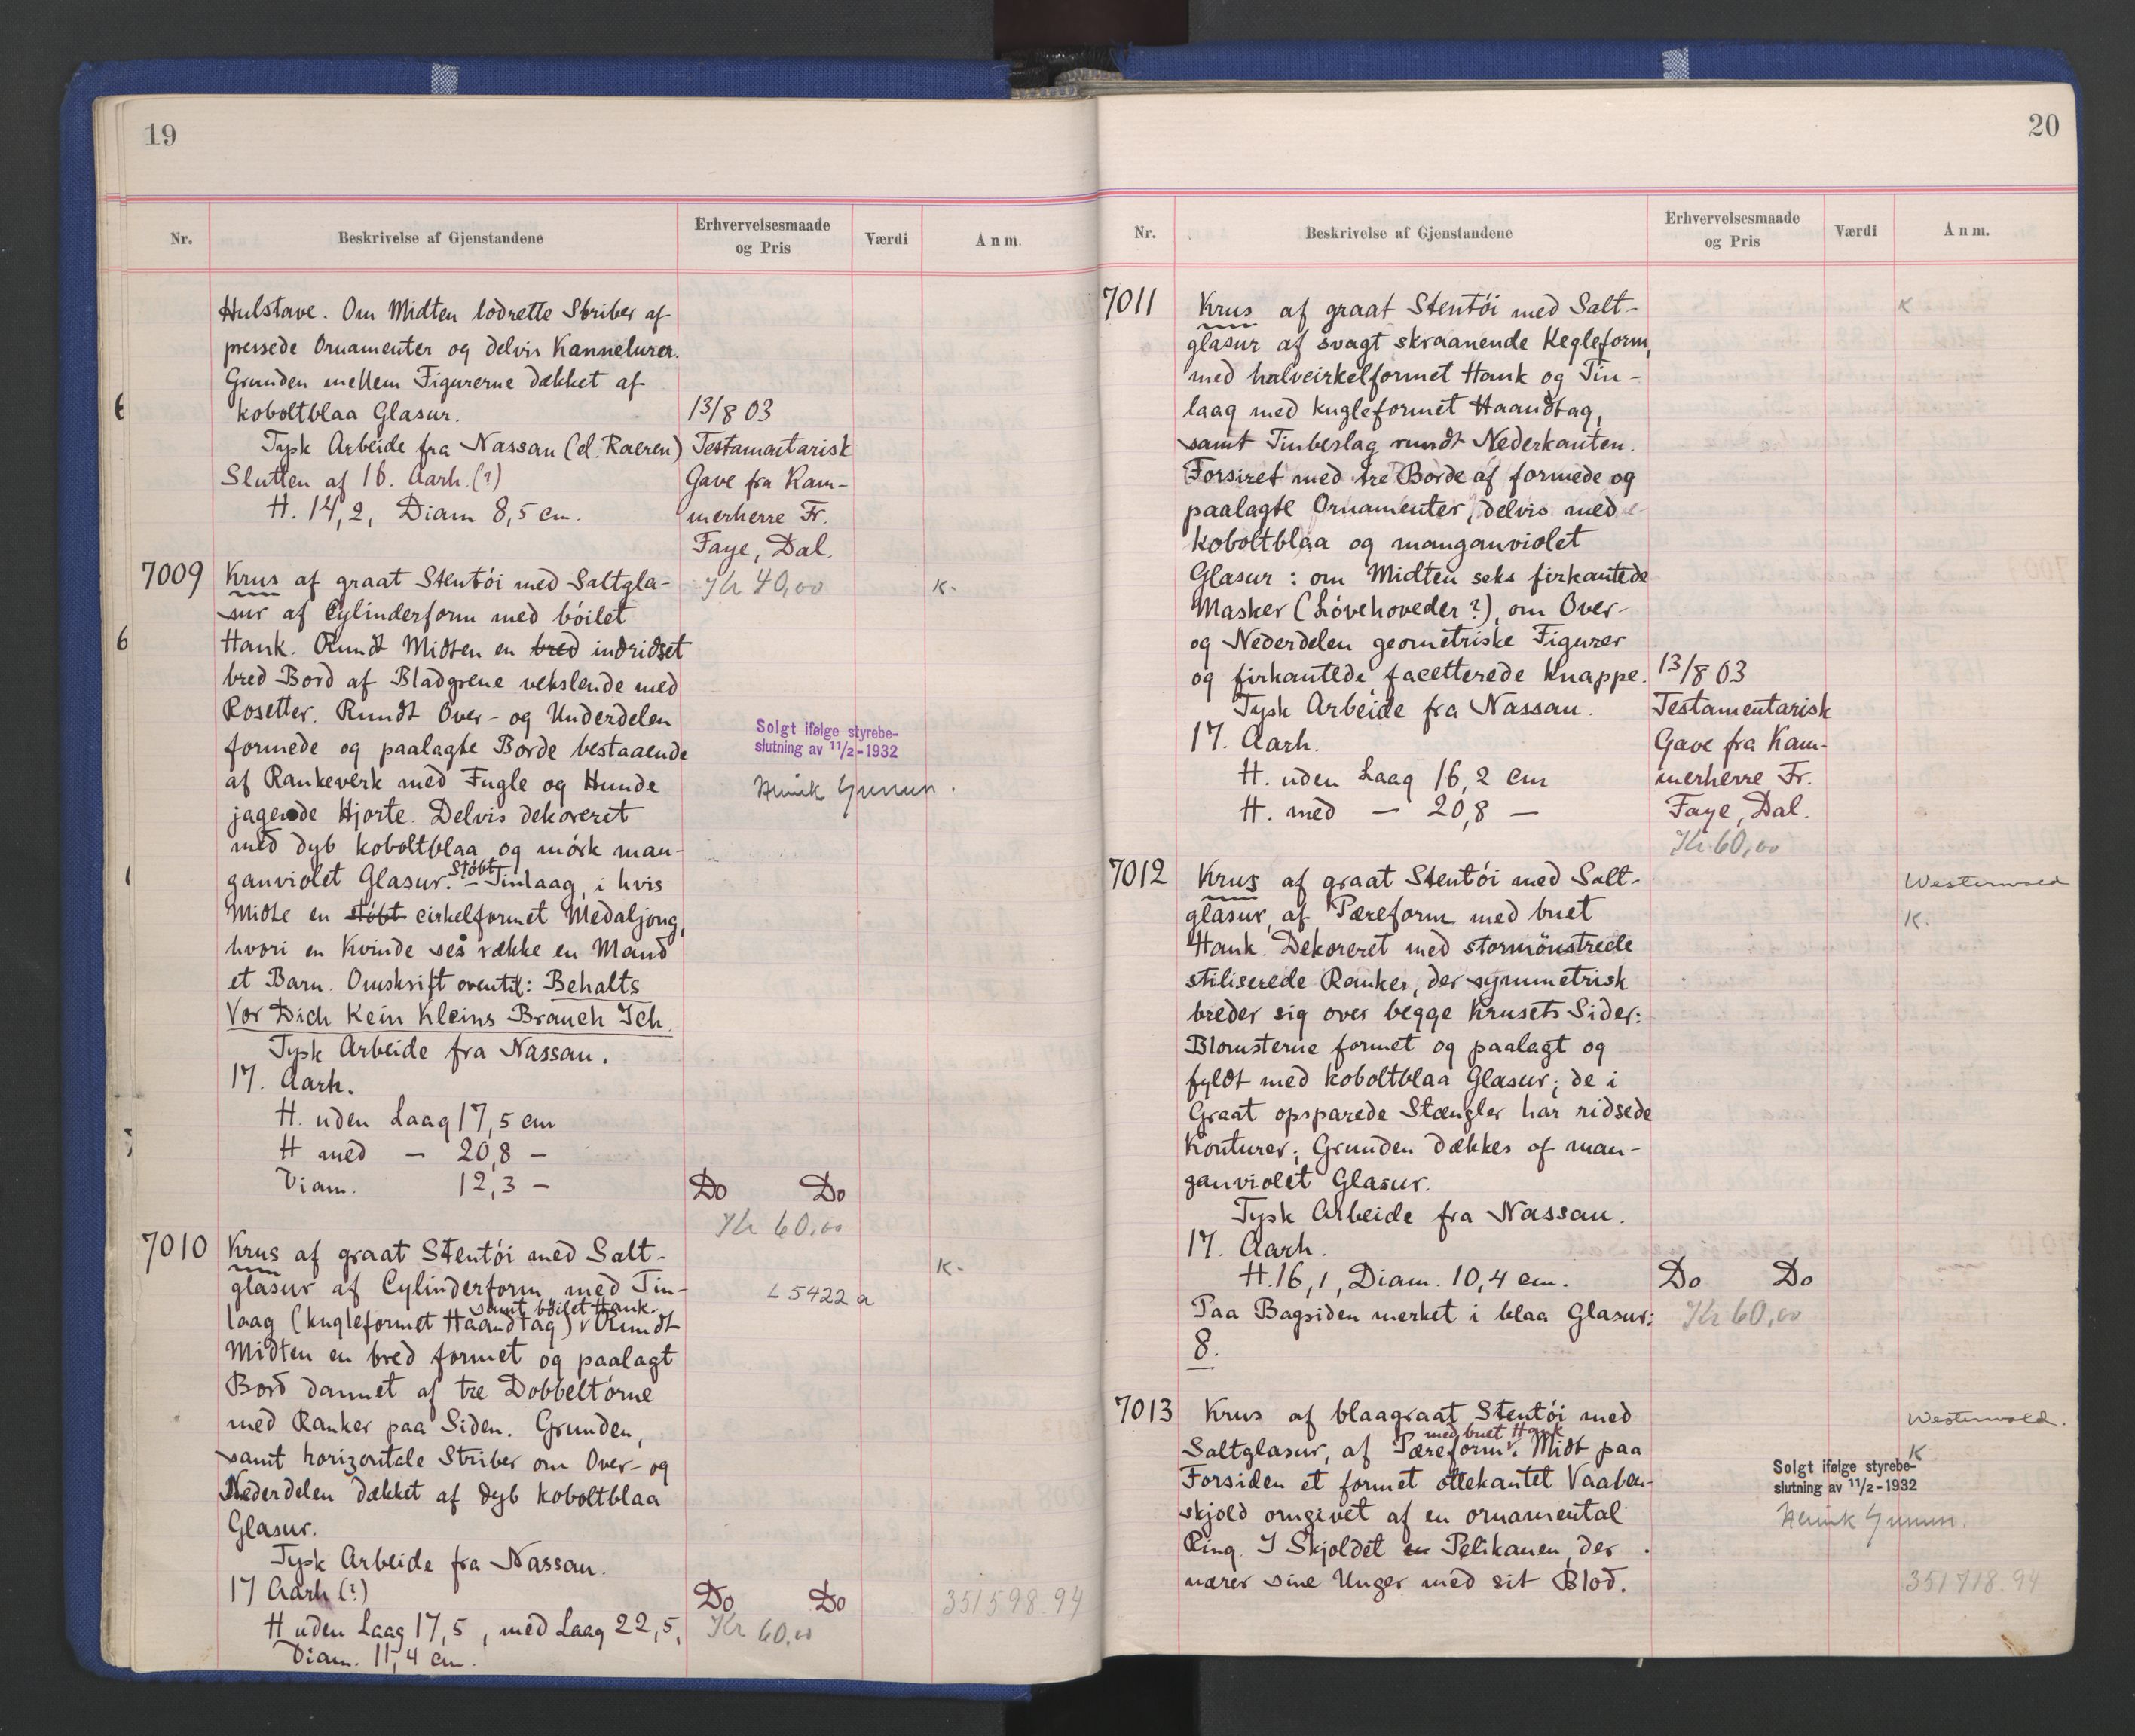 19
Nr.
Beskrivelse af Gjenstandene
Erhvervelsesmaade
og Pris
Værdi
Anm.
Hulstave. Om Midten lodrette Striber af
pressede Ornamenter og delvis Kannelurer.
Grunden mellem Figurerne dækket af
koboltblaa Glasur.
13/8 03
Tysk Arbeide fra Nassau (el. Raeren)
Testamantarisk
Slutten af 16. Aarh. (?)
Gave fra Kam-
H. 14,2, Diam 8,5 cm.
merherre Fr.
Faye, Dal.
7009
Krus af graat Stentöi med Saltgla-
Kr 40,00
K.
sur af Cylinderform med böilet
Hank. Rundt Midten en bred indridset
bred Bord af Bladgrene vekslende med
Rosetter. Rundt Over- og Underdelen
formede og paalagte Borde bestaaende
af Rankeverk med Fugle og Hunde
jagende Hjorte. Delvis dekoreret
med dyb koboltblaa og mörk man-
ganviolet Glasur. Støbt Tinlaag, i hvis
Midte en støbt cirkelformet Medaljong,
hvori en Kvinde sés række en Mand
et Barn. Omskrift oventil: Behalts
Vor Dich Kein Kleins Brauch Ich.
Tysk Arbeide fra Nassau.
17. Aarh.
H. uden Laag 17,5 cm
H med — 20,8 —
Diam. 12,3 —
Solgt ifølge styrebe-
slutning av 11/2-1932
Do Do
Kr 60,00
7010
Krus af graat Stentöi med Salt-
K.
glasur af Cylinderform med Tin-
L 5422 a
samt böilet Hank.
laag (kugleformet Haandtag) v Rundt
Midten en bred formet og paalagt
Bord dannet af tre Dobbeltörne
med Ranker paa Siden. Grunden,
samt horizontale Striber om Over- og
Nederdelen dækket af dyb koboltblaa
Glasur.
Tysk Arbeide fra Nassau.
17 Aarh (?)
Do Do
351598.94
H uden Laag 17,5, med Laag 22,5,
Kr 60,00
Diam. 11,4 cm.
20
Nr.
Beskrivelse af Gjenstandene
Erhvervelsesmaade
og Pris
Værdi
Anm.
7011
Krus af graat Stentöi med Salt-
K
glasur af svagt skraanende Kegleform,
med halvcirkelformet Hank og Tin-
laag med kugleformet Haandtag,
samt Tinbeslag rundt Nederkanten.
Forsiret med tre Borde af formede og
paalagte Ornamenter, delvis med
koboltblaa og manganviolet
Glasur: om Midten seks firkantede
Masker (Lövehoveder?), om Over-
og Nederdelen geometriske Figurer
og firkantede facetterede Knappe.
13/8 03
Tysk Arbeide fra Nassau.
Testamentarisk
17. Aarh.
Gave fra Kam-
H. uden Laag 16,2 cm
merherre Fr.
H. med — 20,8 —
Faye, Dal.
Kr. 60,00
7012
Krus af graat Stentöi med Salt-
Westerwald
glasur, af Pæreform med buet
K.
Hank. Dekoreret med stormönstrede
stiliserede Ranker, der symmetrisk
breder sig over begge Krusets Sider:
Blomsterne formet og paalagt og
fyldt med koboltblaa Glasur; de i
Graat opsparede Stængler har ridsede
Konturer; Grunden dækkes af man-
ganviolet Glasur.
Tysk Arbeide fra Nassau.
17. Aarh.
H. 16,1, Diam. 10,4 cm.
Do Do
Paa Bagsiden merket i blaa Glasur:
Kr 60,00
8.
7013
Krus af blaagraat Stentöi med
Westerwald.
med buet Hank
Saltglasur, af Pæreform v. Midt paa
K
Forsiden et formet ottekantet Vaaben-
Solgt ifølge styrebe-
slutning av 11/2-1932
skjold omgivet af en ornamental
Ring. I Skjoldet en Pelikanen, der
nærer sine Unger med sit Blod.
351718.94